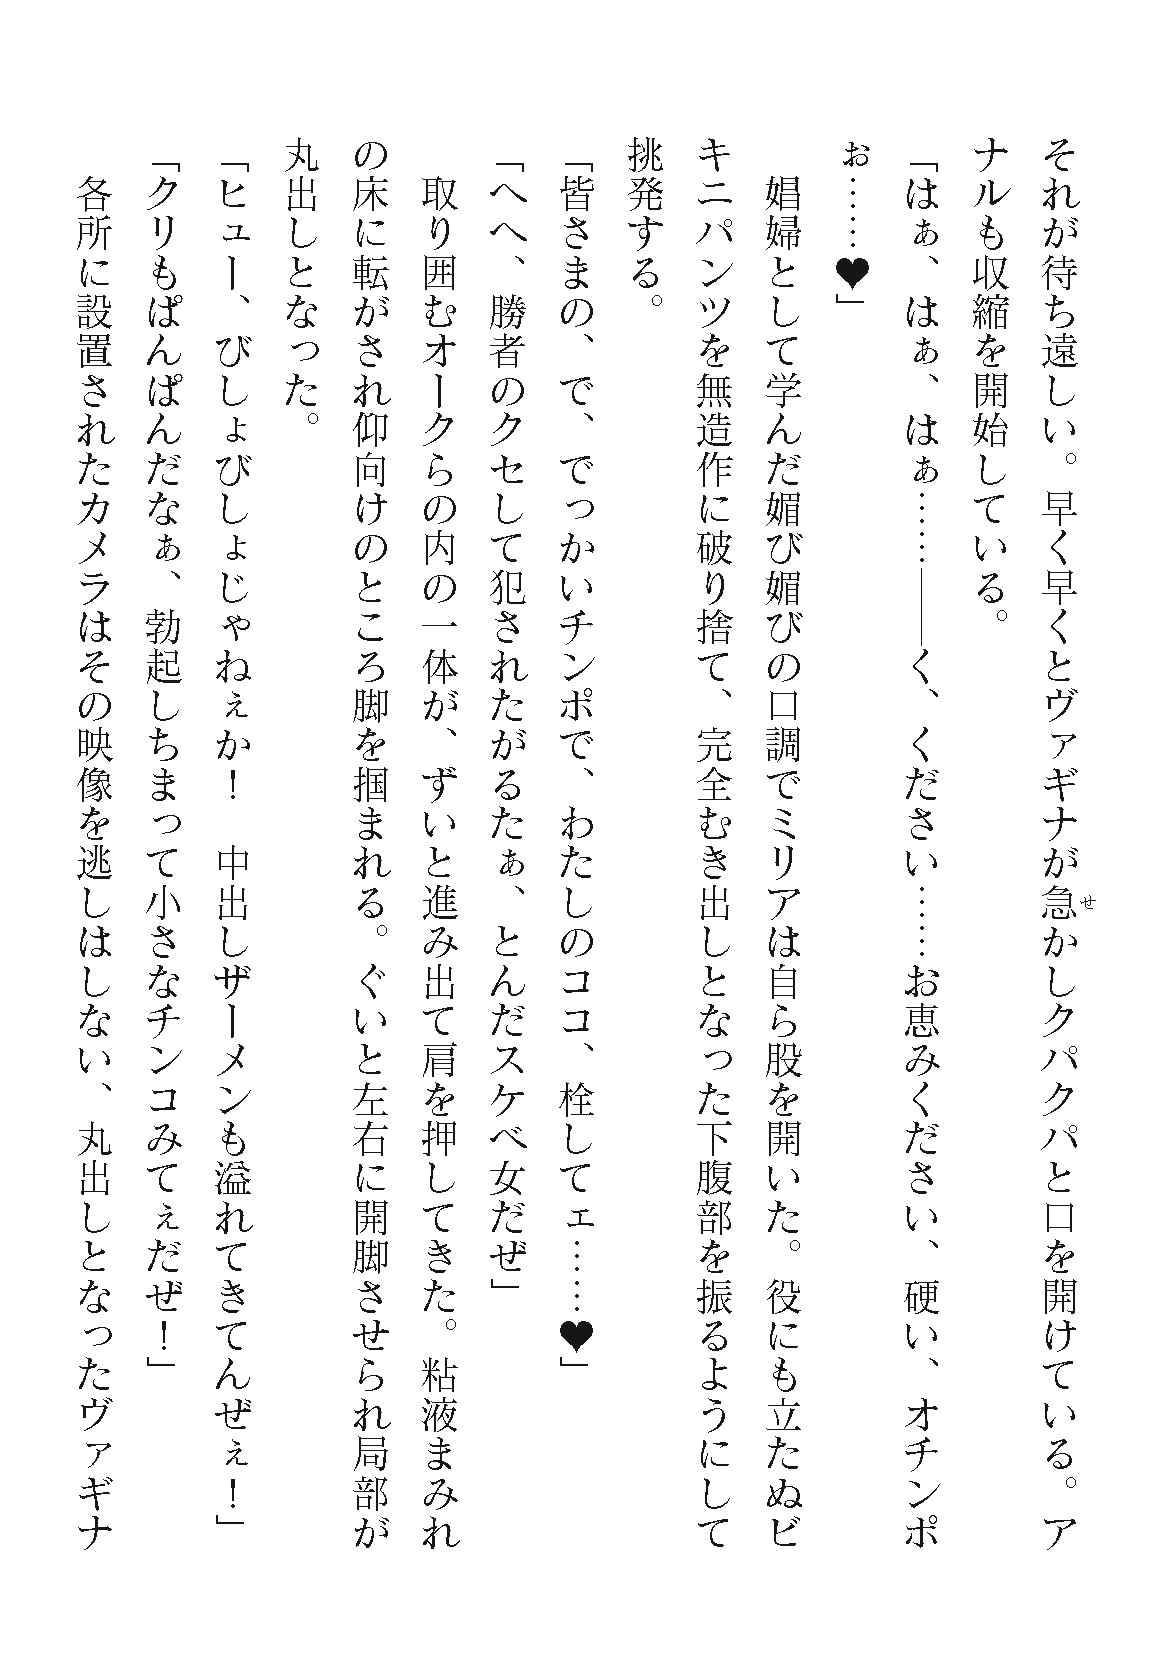 それが待ち遠しい。早く早くとヴァギナが急かしクパクパと口を開けている。ア
ナルも収縮を開始している。
「はぁ、はぁ、はぁ……――く、ください……お恵みください、硬い、オチンポ
ぉ……♥」
　娼婦として学んだ媚び媚びの口調でミリアは自ら股を開いた。役にも立たぬビ
キニパンツを無造作に破り捨て、完全むき出しとなった下腹部を振るようにして
挑発する。
「皆さまの、で、でっかいチンポで、わたしのココ、栓してェ……♥」
「へへ、勝者のクセして犯されたがるたぁ、とんだスケベ女だぜ」
　取り囲むオークらの内の一体が、ずいと進み出て肩を押してきた。粘液まみれ
の床に転がされ仰向けのところ脚を掴まれる。ぐいと左右に開脚させられ局部が
丸出しとなった。
「ヒュー、びしょびしょじゃねぇか！　中出しザーメンも溢れてきてんぜぇ！」
「クリもぱんぱんだなぁ、勃起しちまって小さなチンコみてぇだぜ！」
　各所に設置されたカメラはその映像を逃しはしない、丸出しとなったヴァギナ
せ